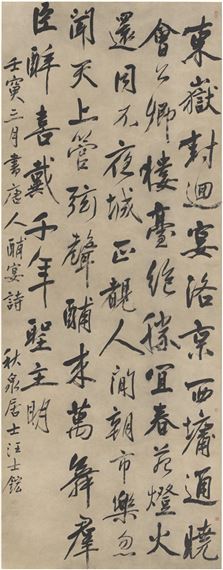 東嶽封迴宴洛京西墉通曉
會公卿樓臺絕勝宜春苑燈火
還同不夜城正覩人間朝市樂忽
聞天上管弦聲酺來萬舞群
臣醉喜戴千年聖主明
壬寅三月書唐人酺宴詩 秋泉居士汪士鋐